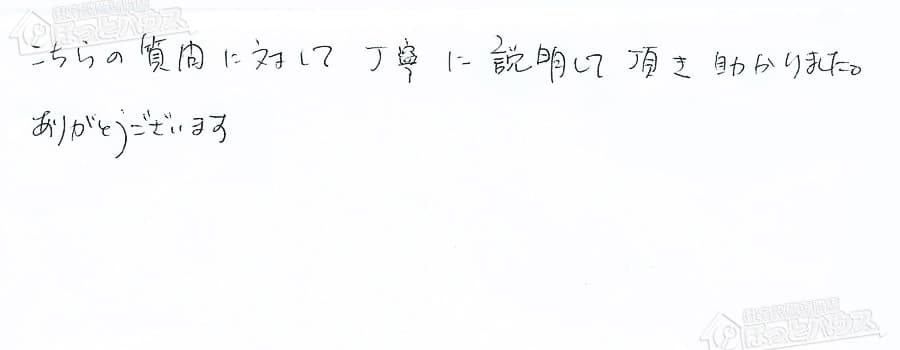 こちらの質問に対して丁寧に説明して頂き助かりました。
ありがとうございます
ほっとハウス
ほっとハウス